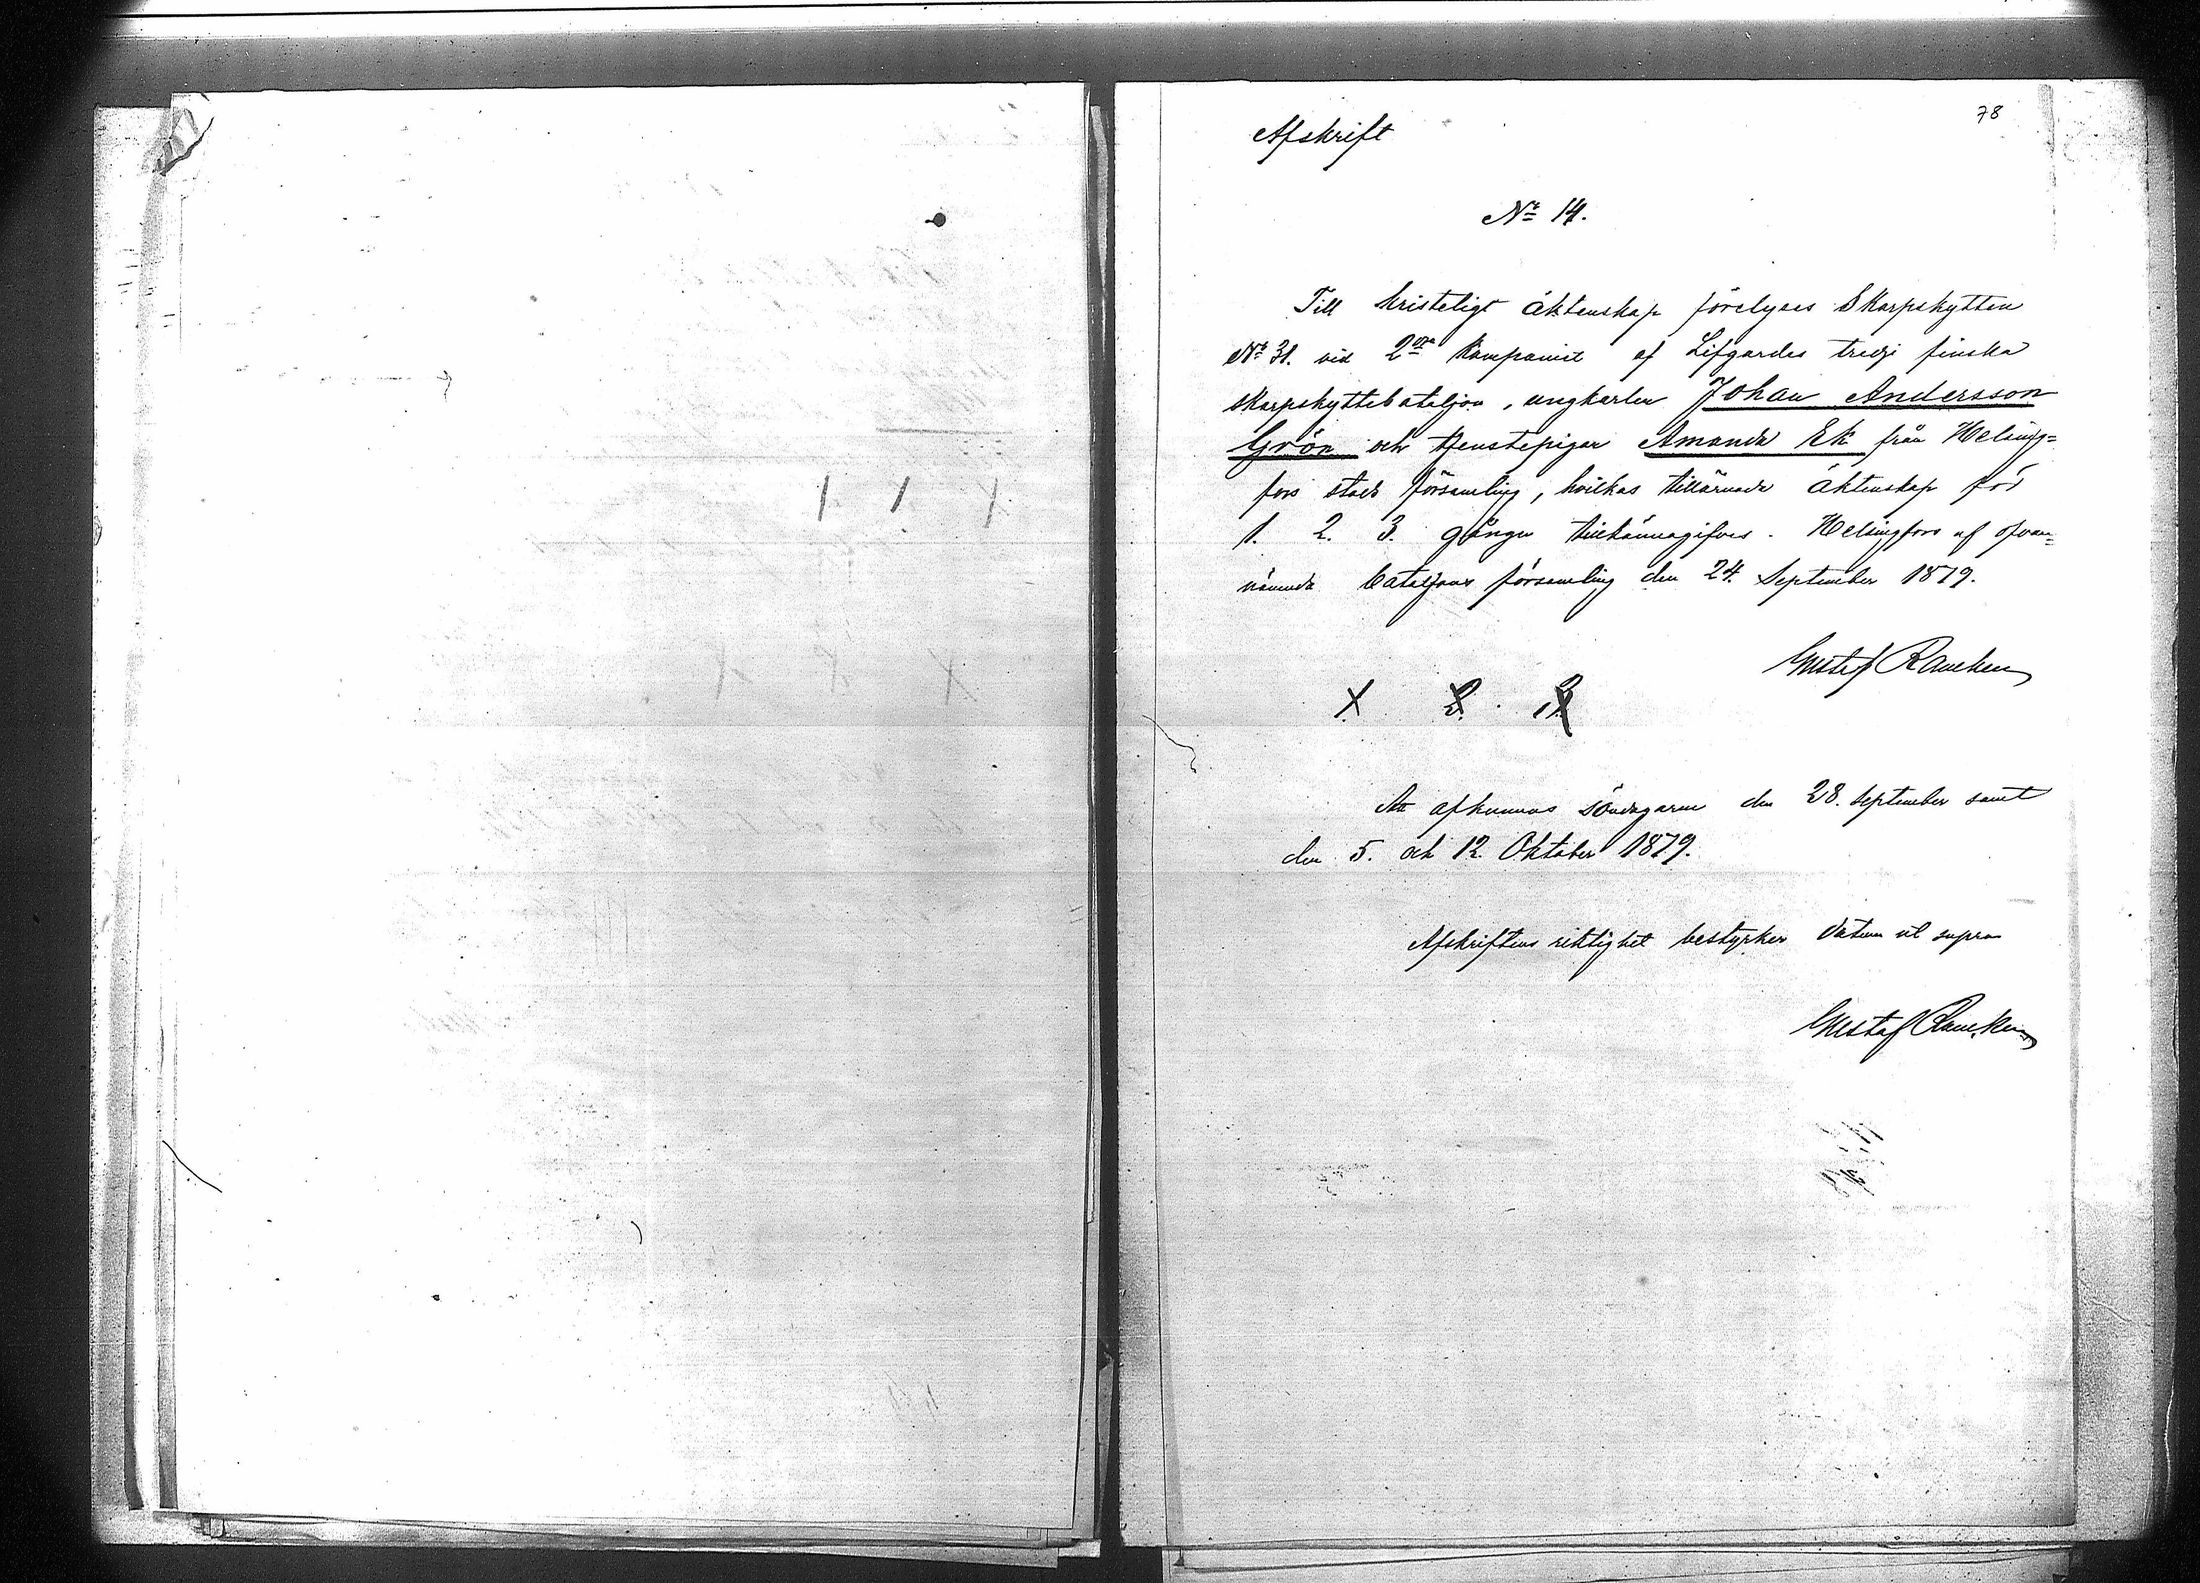 78
Afskrift
No 14.
Till kristeligt äktenskap förelyses Skarpskytten
No 31. vid 2dra Kompaniet af Lifgardes tredje finska
skarpskyttebataljon, ungkarlen Johan Andersson
Grön och tjenstepigan Amanda Ek från Helsing=
fors stads församling, hvilkas tillärnade äktenskap för
1. 2. 3. gången tillkännagifves. Helsingfors af ofvan=
nämnda bataljons församling den 24. September 1879.
Gustaf Rancken
1. 2. 3.
Att afkunnas söndagarne den 28. September samt
den 5. och 12. Oktober 1879.
Afskriftens riktighet bestyrker datum ut supra
Gustaf Rancken